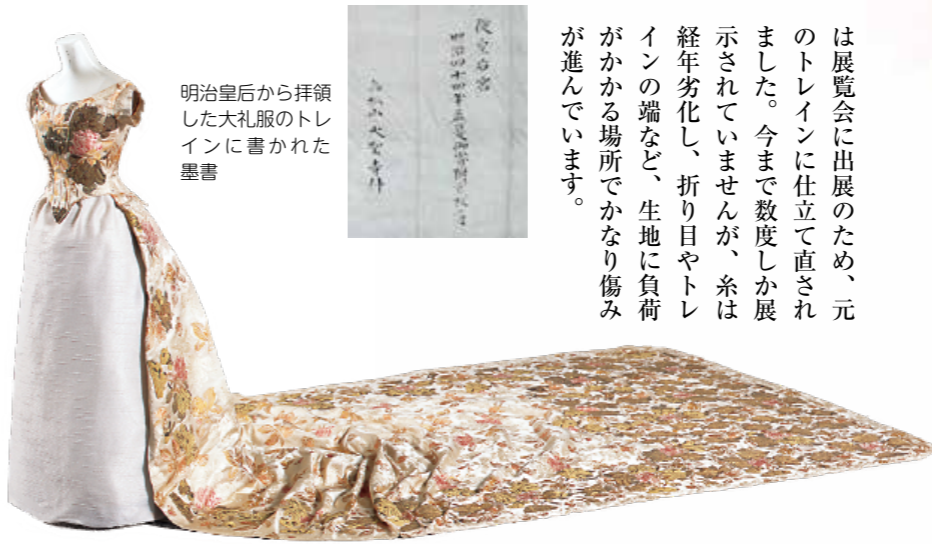 は展覧会に出展のため、元
のトレインに仕立て直され
ました。今まで数度しか展
示されていませんが、糸は
経年劣化し、折り目やトレ
インの端など、生地に負荷
がかかる場所でかなり傷み
が進んでいます。
明治皇后から拝領
した大礼服のトレ
インに書かれた
墨書
明治四十四年